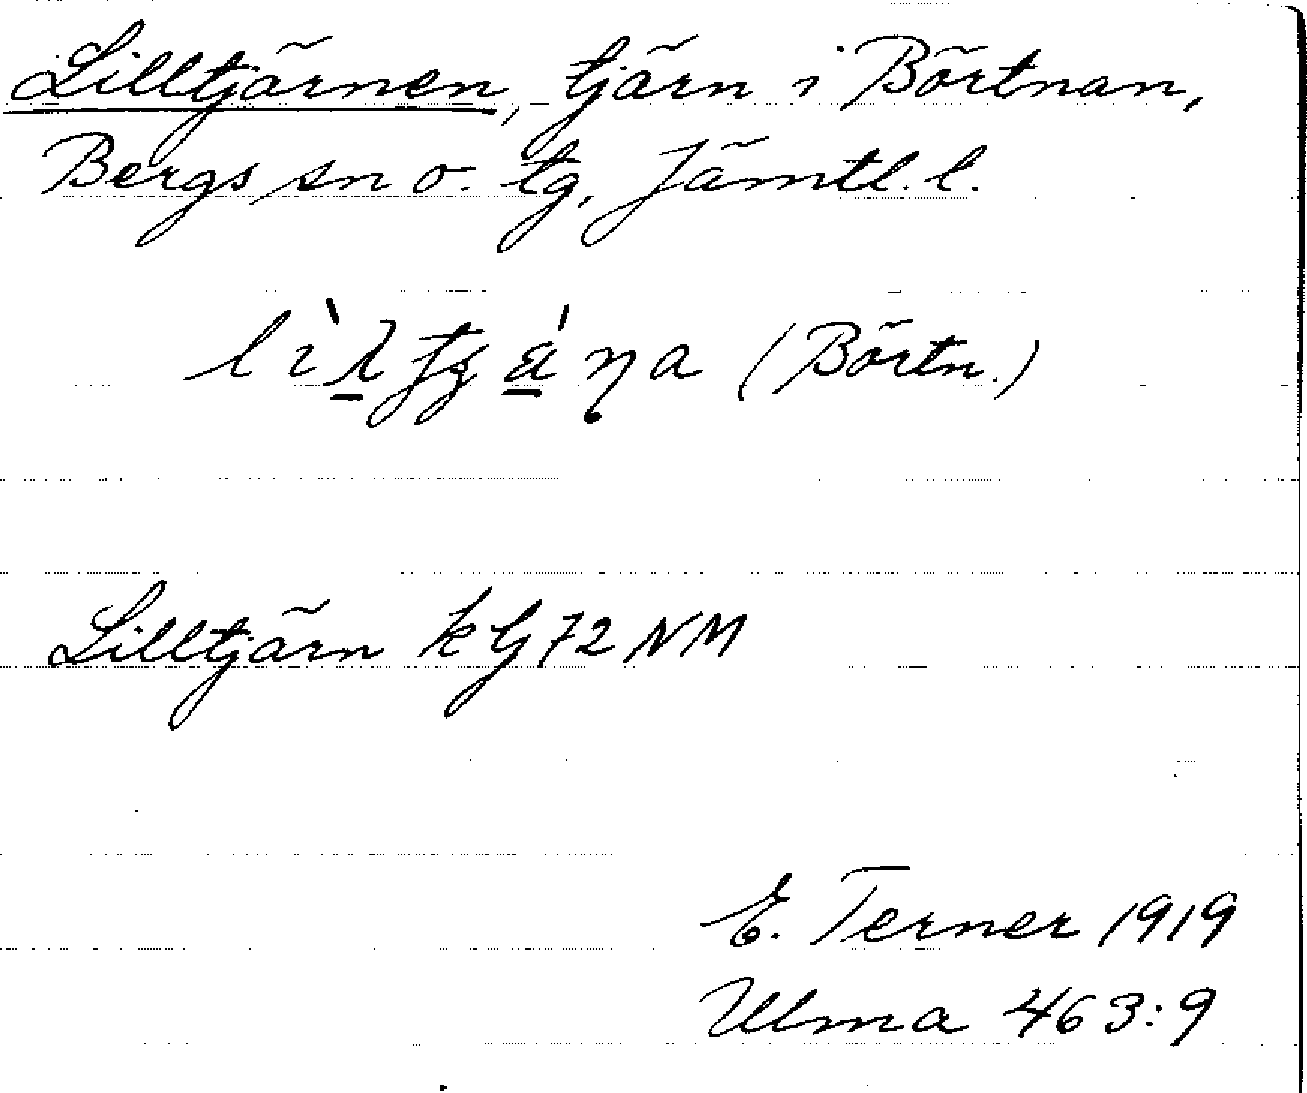 Lilltjärnen, tjärn i Börtnan,
Bergs sn o. tg, Jämtl. l.
(Börtn.)
Lilltjärn kG72NM
E. Terner 1919
Ulma 463:9